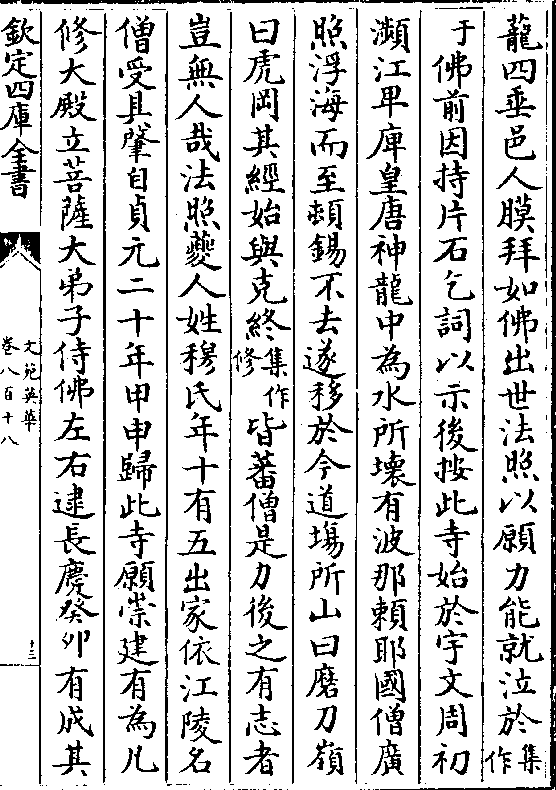 蘢四垂邑人膜拜如佛出世法照以願力能就泣於集作
于佛前因持片石乞詞以示後按此寺始於宇文周初
瀕江卑庳皇唐神龍中為水所壞有波那頼耶國僧廣
照浮海而至頼錫不去遂移於今道場所山曰磨刀嶺
曰虎岡其經始與克終集作修皆蕃僧是力後之有志者
豈無人哉法照夔人姓穆氏年十有五出家依江陵名
僧受具肇自貞元二十年甲申歸此寺願崇建有為凡
修大殿立菩薩大弟子侍佛左右逮長慶癸夘有成其
欽定四庫全書
文苑英華
卷八百十八
十三